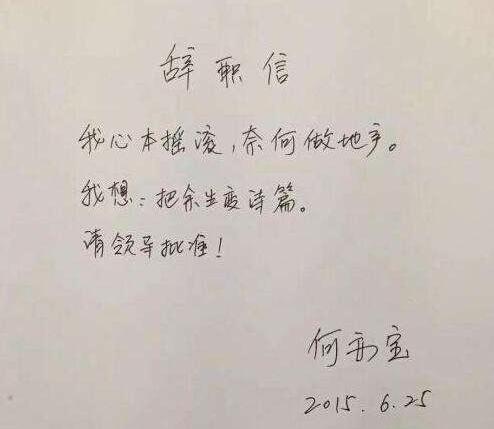 辞职信
我心本摇滚，奈何做地产。
我想：把余生变诗篇。
请领导批准！
何勇宝
2015.6.25